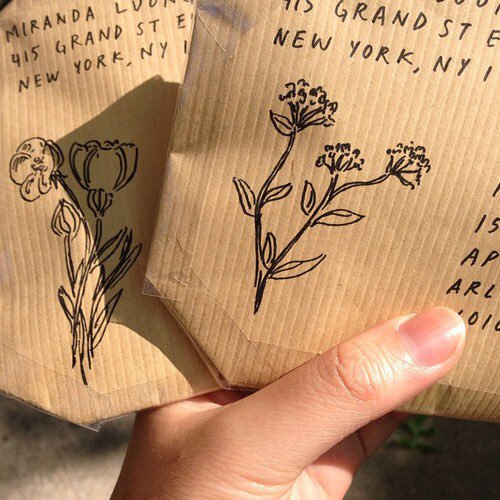 MIRANDA
415 GRAND ST E
NEW YORK, NY 1
415 GRAND ST E
NEW YORK, NY 1
15
AP
ARL